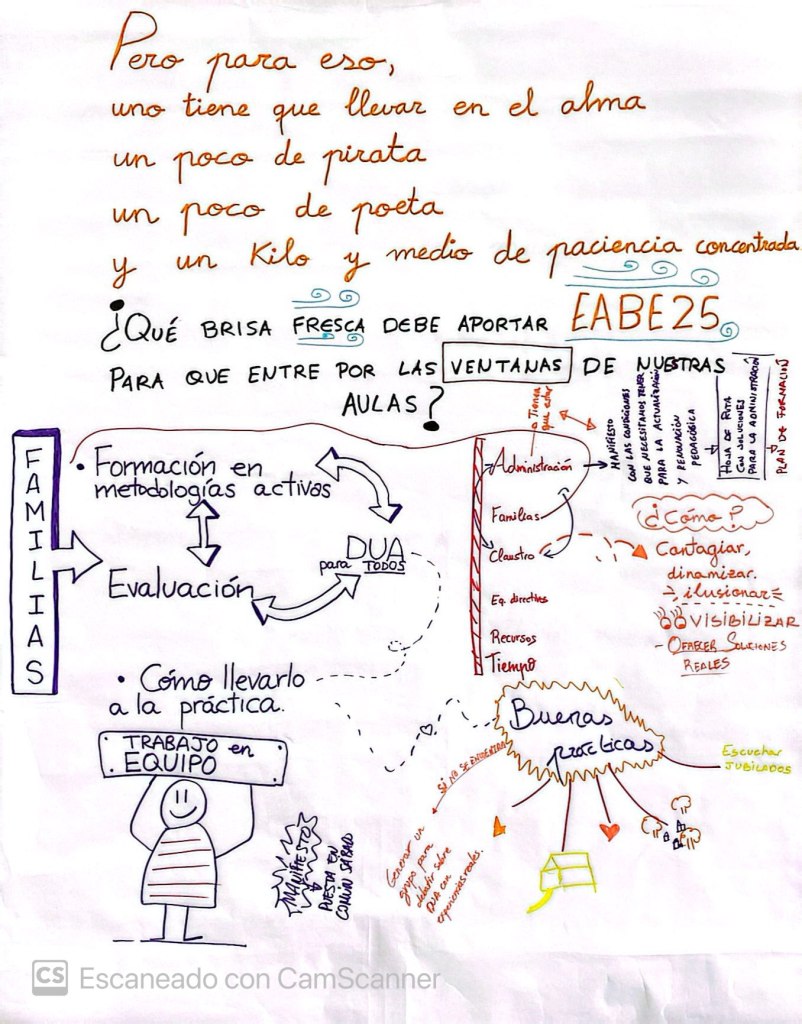 Pero para eso,
uno tiene que llevar en el alma
un poco de pirata
un poco de poeta
y un Kilo y medio de paciencia concentrada.
¿QUÉ BRISA FRESCA DEBE APORTAR EABE25
PARA QUE ENTRE POR LAS VENTANAS DE NUESTRAS
AULAS?
FAMILIAS
• Formación en
metodologías activas
Evaluación
DUA
para TODOS
• Cómo llevarlo
a la práctica.
TRABAJO en
EQUIPO
MANIFIESTO
PUESTA EN
COMÚN SÁBADO
Tienen
que estar
Administración
Familias
Claustro
Eq. directivos
Recursos
Tiempo
MANIFIESTO
CON LAS CONDICIONES
QUE NECESITAMOS TENER
PARA LA ACTUALIZACIÓN
Y RENOVACIÓN
PEDAGÓGICA
HOJA DE RUTA
CON SOLUCIONES
PARA LA ADMINISTRACIÓN
PLAN DE FORMACIÓN
¿Cómo?
Contagiar,
dinamizar.
ilusionar
VISIBILIZAR
- OFRECER SOLUCIONES
REALES
Buenas
prácticas
Escuchar
JUBILADOS
SI NO SE ENCUENTRAN
Generar un
grupo para
debatir sobre
DUA con
experiencias reales.
CS Escaneado con CamScanner